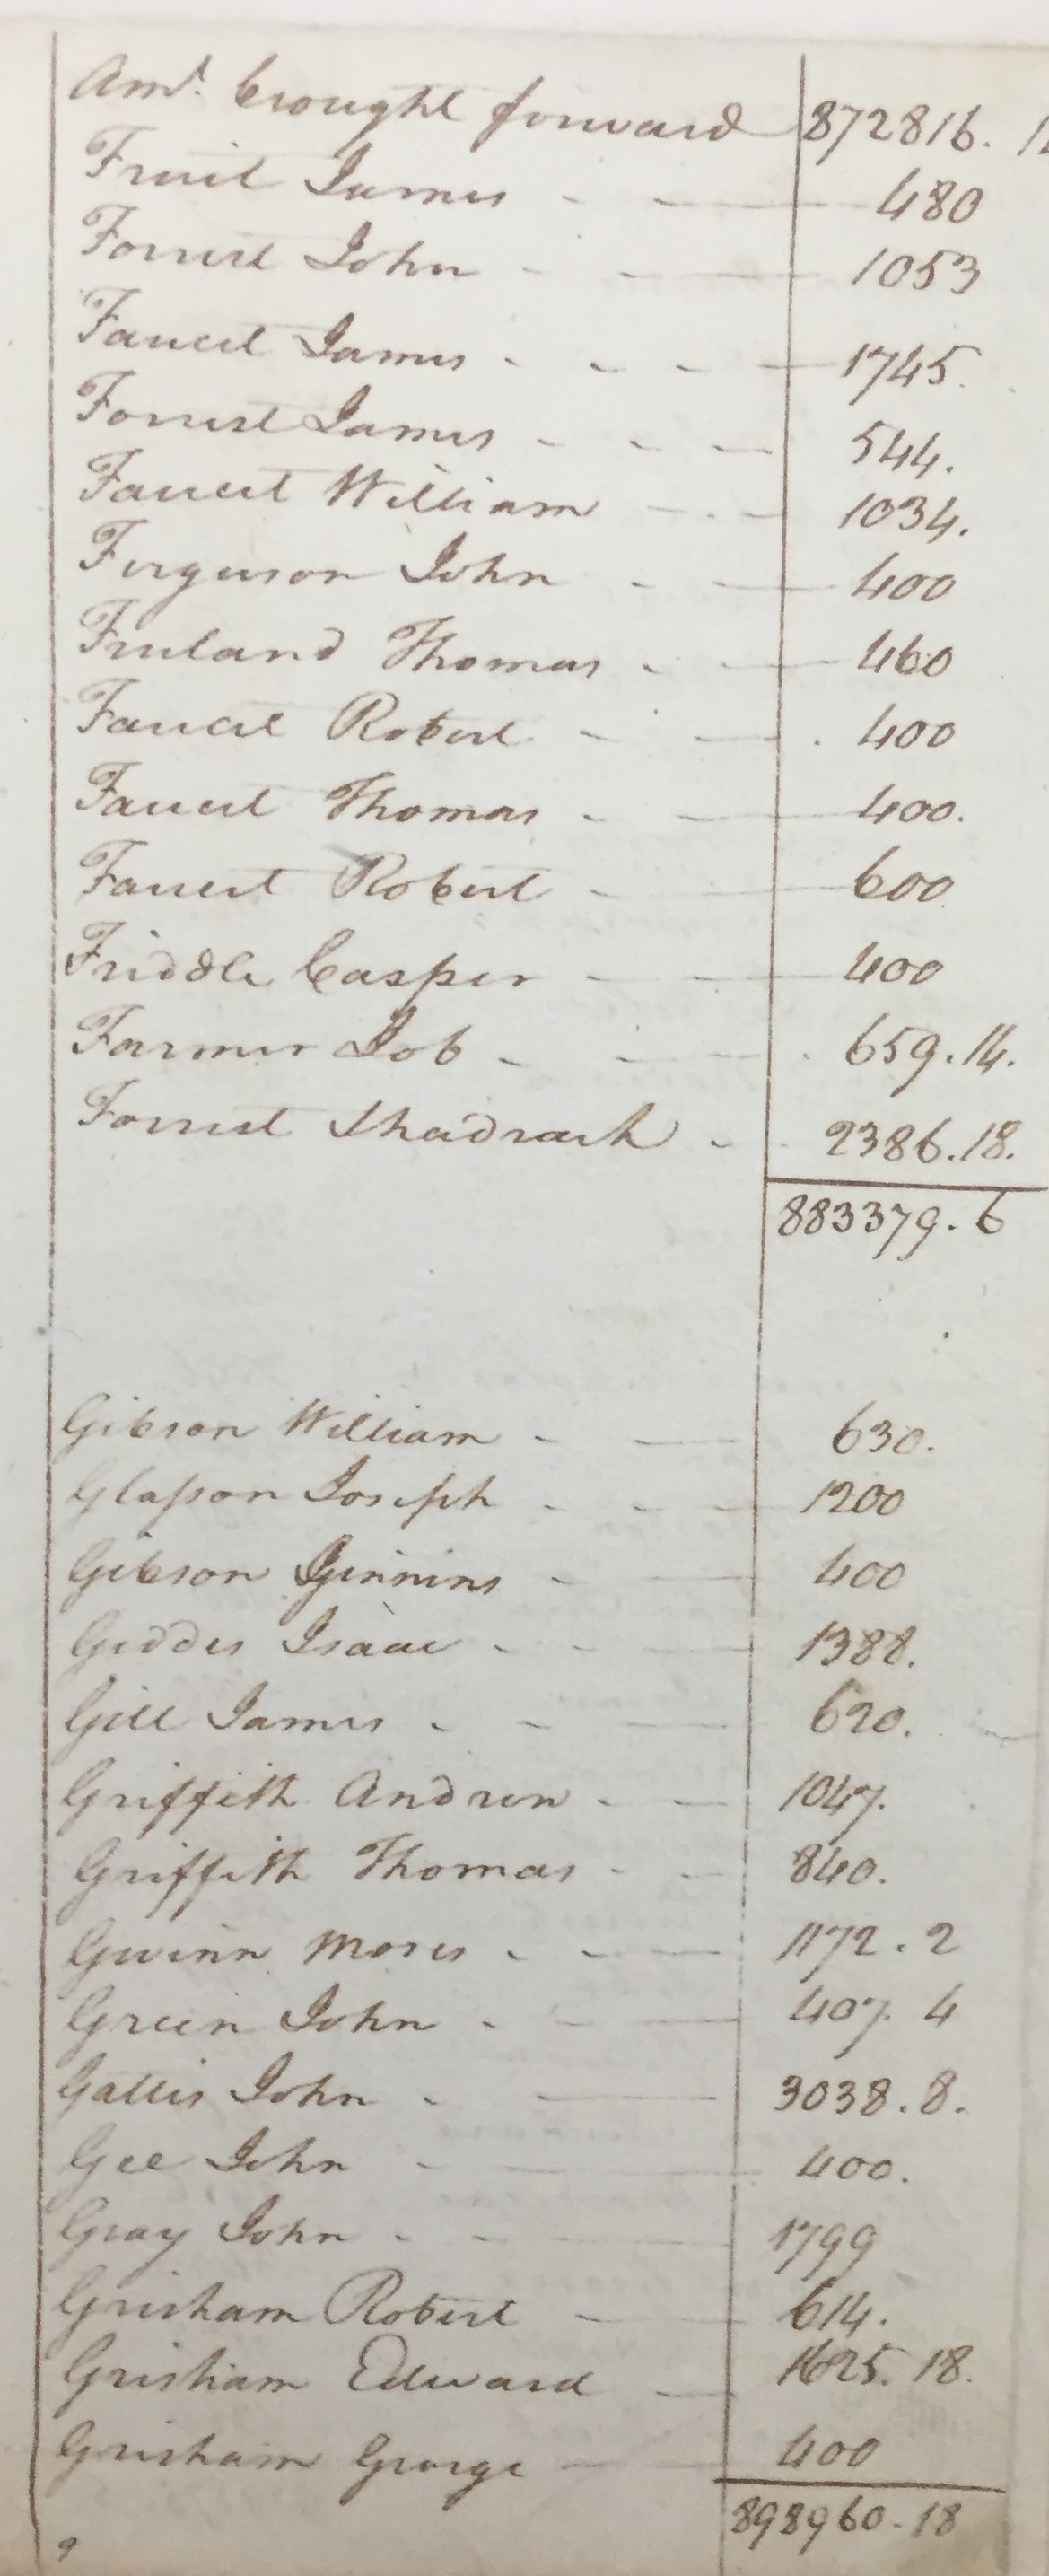 Amt. brought forward 872816.
Fruit James 480
Forrest John 1053
Faucet James 1745.
Forrest James 544.
Faucet William 1034.
Ferguson John 400
Freeland Thomas 460
Faucet Robert 400
Faucet Thomas 400.
Faucet Robert 600
Friddle Casper 400
Farmer Job 659.14.
Forrest Shadrach 2386.18.
883379.6
Gibson William 630.
Glasson Joseph 1200
Gibson Jinnins 400
Geddes Isaac 1388.
Gill James 620.
Griffith Andrew 1047.
Griffith Thomas 840.
Gwinn Moses 1172.2
Green John 407.4
Gattis John 3038.8.
Gee John 400.
Gray John 1799
Grisham Robert 614.
Grisham Edward 1625.18.
Grisham George 400
898960.18
9